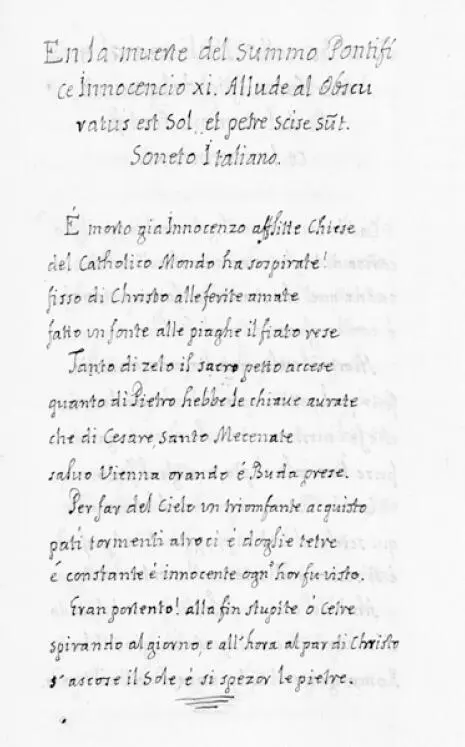 En la muerte del summo Pontifi
ce Innocencio xi. Allude al Obscu
ratus est Sol, et petre scise sũt.
Soneto Italiano.
É morto gia Innocenzo afflitte Chiese
del Catholico Mondo ha sospirate!
fisso di Christo alle ferite amate
fatto un fonte alle piaghe il fiato rese
Tanto di zelo il sacro petto accese
quanto di Pietro hebbe le chiaue aurate
che di Cesare, santo Mecenate
saluo Vienna orando é Buda prese.
Per far del Cielo un triomfante acquisto
pati tormenti atroci é doglie tetre
é constante é innocente ognⁿ hor fu visto.
Gran portento! alla fin stupite ó Cetre
spirando al giorno, e all'hora al par di Christo
s'ascose il Sole é si spezor le pietre.